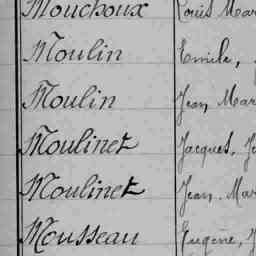 Mouchoux Louis Mar
Moulin Emile,
Moulin Jean Mar
Moulinet Jacques, Je
Moulinet Jean. Mar
Mousseau Eugène, J